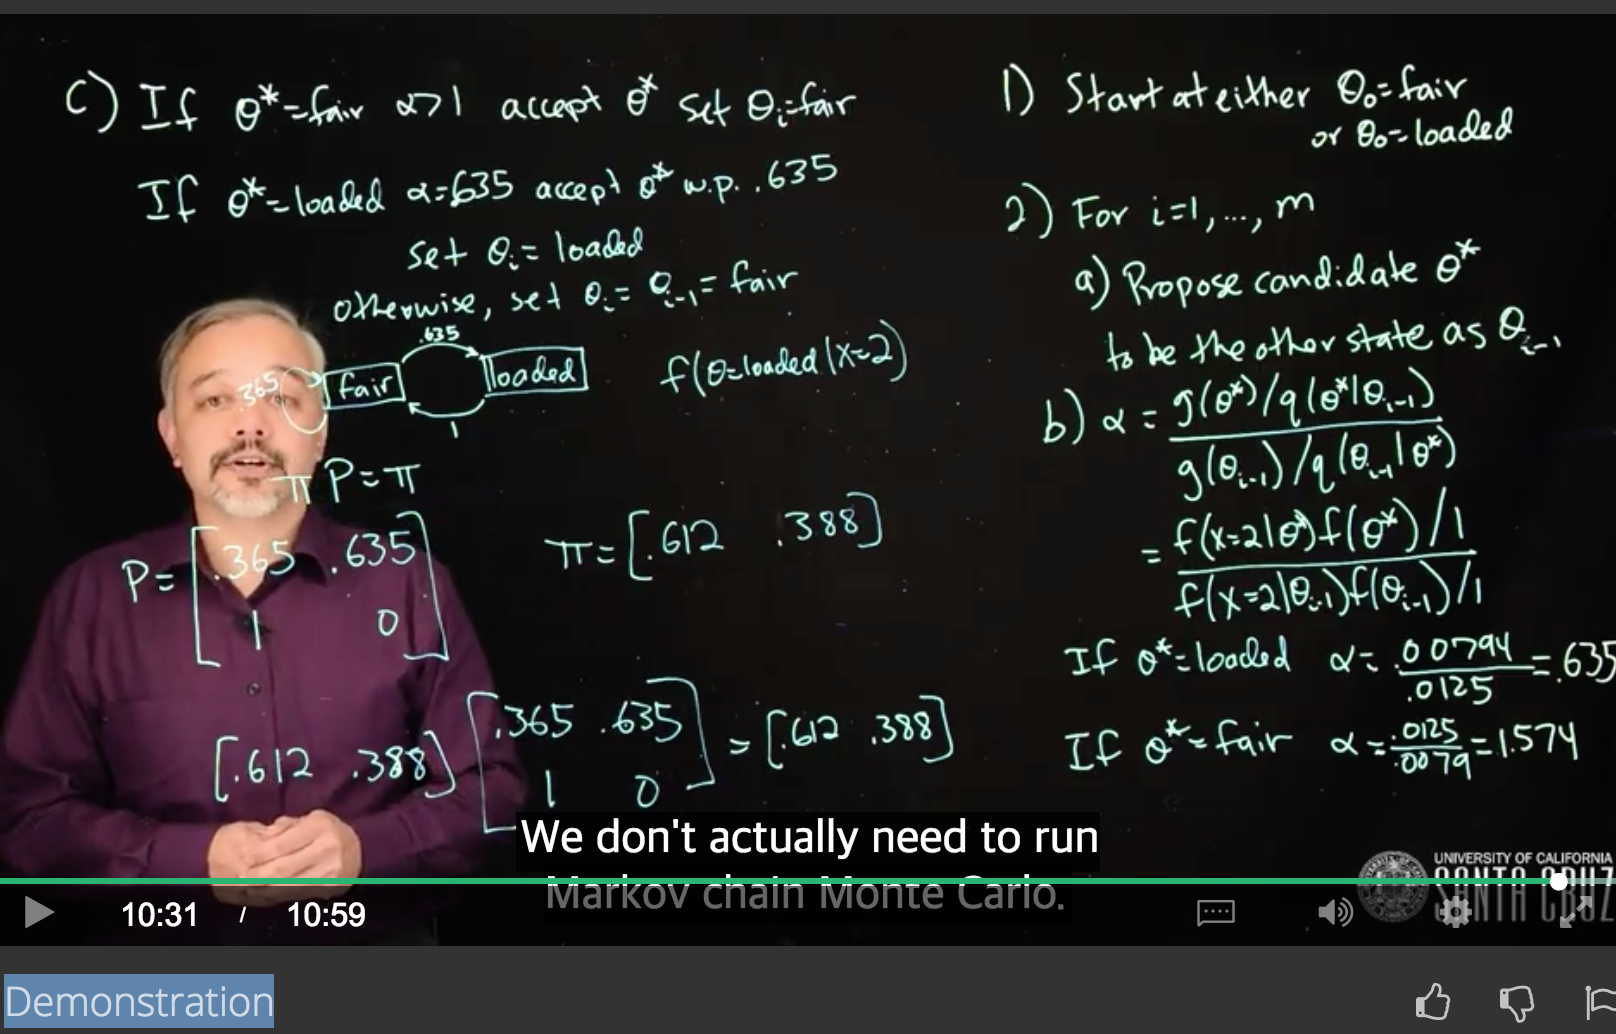 C) If θ*=fair α>1 accept θ* set θᵢ=fair
If θ*=loaded α=.635 accept θ* w.p. .635
set θᵢ= loaded
otherwise, set θᵢ= θᵢ₋₁= fair
.635
.365 fair loaded
1
f(θ=loaded|x=2)
πP=π
P= [.365 .635
1 0]
π= [.612 .388]
[.612 .388] [.365 .635
1 0] = [.612 .388]
1) Start at either θ₀=fair
or θ₀=loaded
2) For i=1,...,m
a) Propose candidate θ*
to be the other state as θᵢ₋₁
b) α = g(θ*)/q(θ*|θᵢ₋₁)
g(θᵢ₋₁)/q(θᵢ₋₁|θ*)
= f(x=2|θ*)f(θ*)/1
f(x=2|θᵢ₋₁)f(θᵢ₋₁)/1
If θ*=loaded α= .00794
.0125 =.635
If θ*=fair α= .0125
.0079 =1.574
We don't actually need to run
Markov chain Monte Carlo.
UNIVERSITY OF CALIFORNIA
SANTA CRUZ
10:31 / 10:59
Demonstration